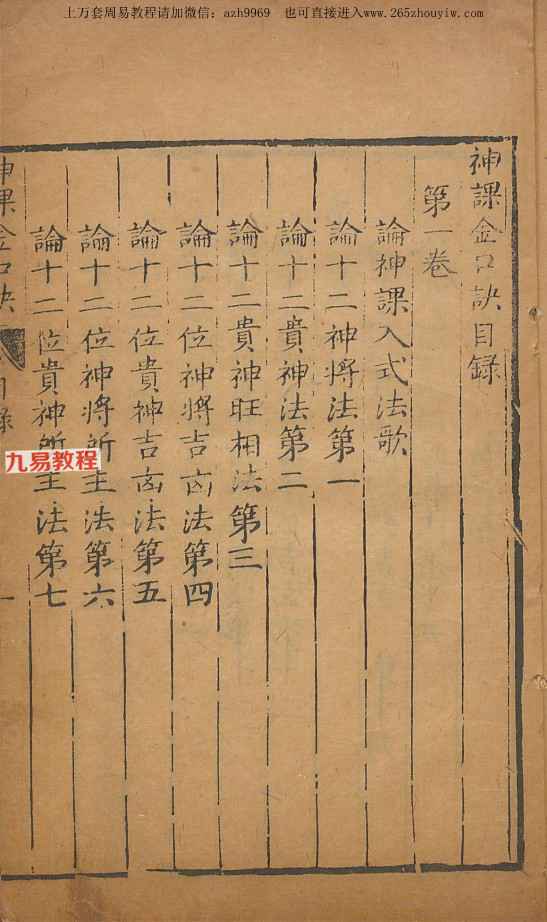 上万套周易教程请加微信：azh9969 也可直接进入www.265zhouyiw.com
神課金口訣目録
第一卷
論神課入式法歌
論十二神將法第一
論十二貴神法第二
論十二貴神旺相法第三
論十二位神將吉凶法第四
論十二位貴神吉凶法第五
論十二位神將所主法第六
論十二位貴神所主法第七
神課金口訣 目録 一
九易教程